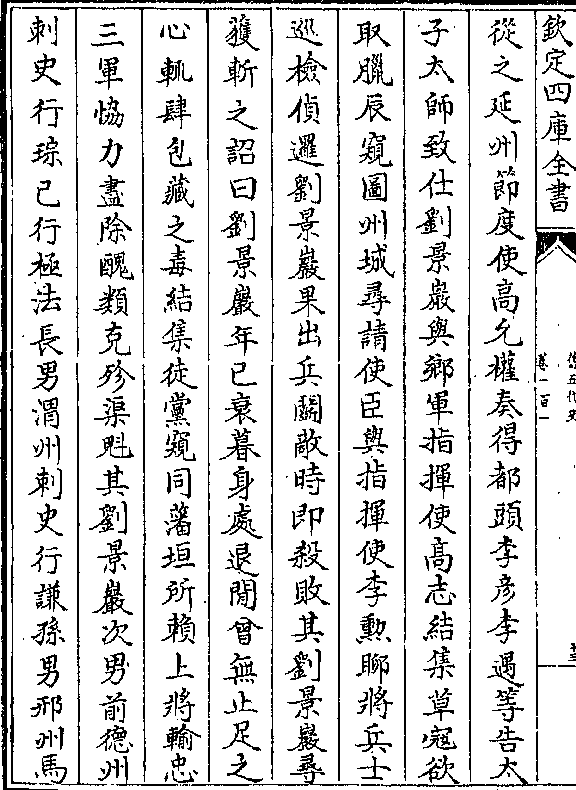 欽定四庫全書
舊五代史
卷一百一
從之延州節度使高允權奏得都頭李彦李遇等告太
子太師致仕劉景巖與鄉軍指揮使高志結集草宼欲
取臘辰窺圖州城尋請使臣與指揮使李勲聊將兵士
巡檢偵邏劉景巖果出兵鬭敵時即殺敗其劉景巖尋
獲斬之詔曰劉景巖年已衰暮身處退閒曾無止足之
心輒肆包藏之毒結集徒黨窺同藩垣所賴上將輸忠
三軍恊力盡除醜類克殄渠魁其劉景巖次男前德州
刺史行琮已行極法長男渭州刺史行謙孫男邢州馬